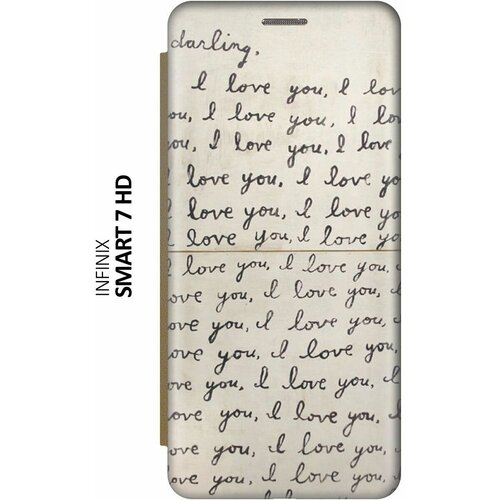 INFINIX
SMART 7 HD
darling,
I love you, I lov
ou, I love you, I lov
you, I love you, I love
I love you, I love yo
I love you, I love yo
I love you, I love yo
I love you, I love you,
love you, I love you,
love you, I love you, I
ove you, I love you,
ove you, I love you,
ove you, I love you, I
ove you, I love you, I
love you, I love you,